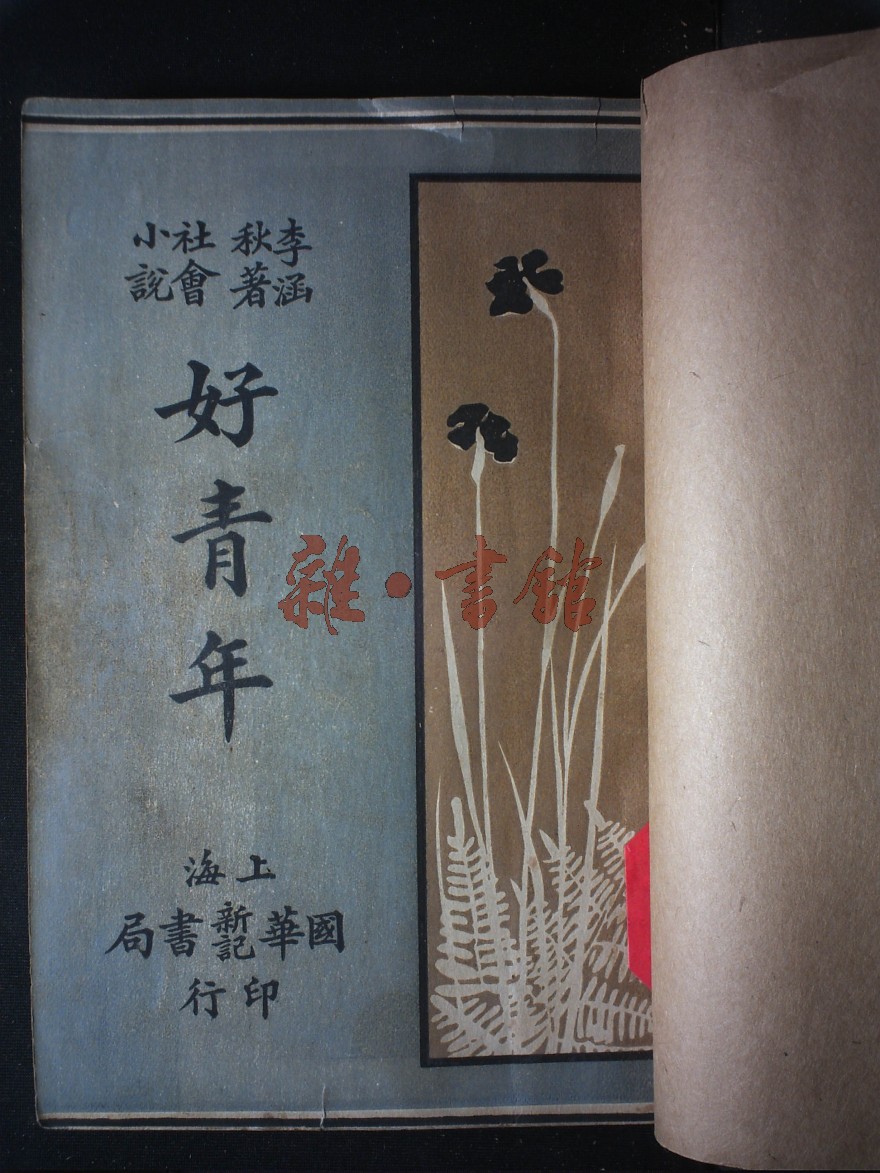 李涵秋著
社會小說
好青年
上海
國華新記書局
印行
雜·書館